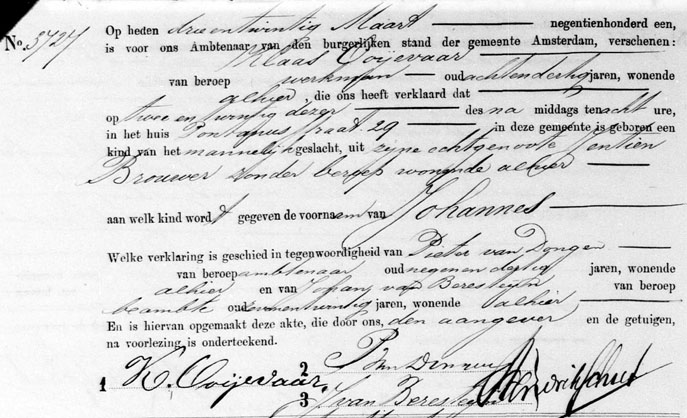 Op heden drieentwintig Maart negentienhonderd een,
No. 3727 is voor ons Ambtenaar van den burgerlijken stand der gemeente Amsterdam, verschenen:
Klaas Ooijevaar
van beroep werkman oud achtendertig jaren, wonende
alhier, die ons heeft verklaard dat
op twee en twintig dezer des na middags ten acht ure,
in het huis Pontanusstraat 29 in deze gemeente is geboren een
kind van het mannelijk geslacht, uit zijne echtgenoote Jentien
Brouwer zonder beroep wonende alhier
aan welk kind wordt gegeven de voornaam van Johannes
Welke verklaring is geschied in tegenwoordigheid van Pieter van Dongen
van beroep ambtenaar oud negenendertig jaren, wonende
alhier en van Johan van Beresteijn van beroep
beambte oud zevenentwintig jaren, wonende alhier
En is hiervan opgemaakt deze akte, die door ons, den aangever en de getuigen,
na voorlezing, is onderteekend.
1 K. Ooijevaar. 2 P van Dongen
3 J van Beresteijn